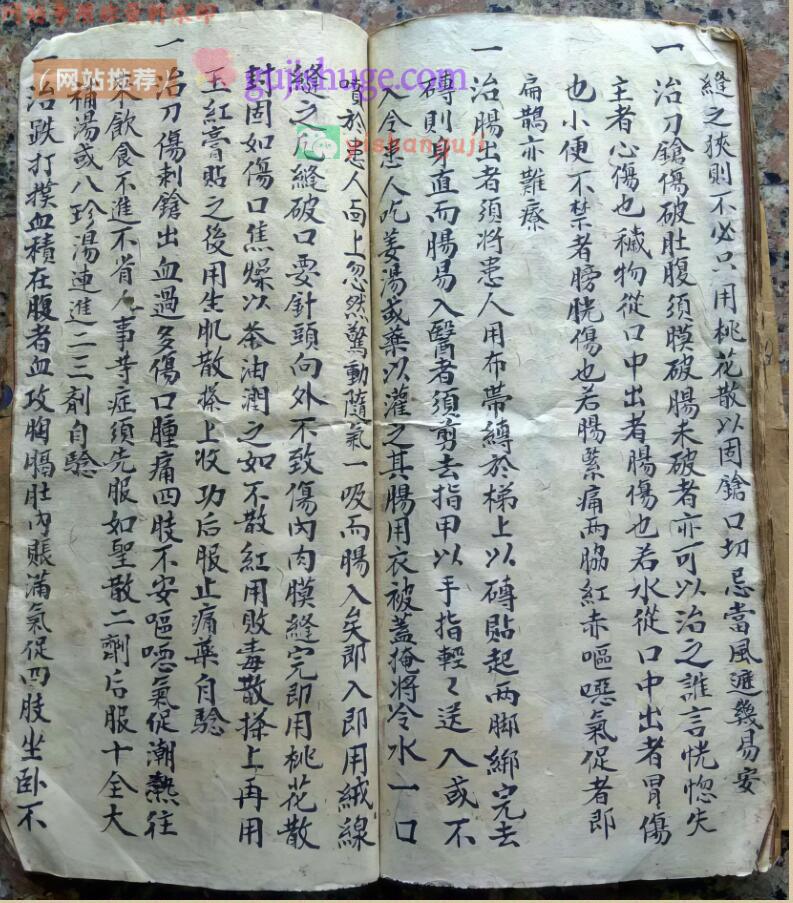 网站专属防盗粉水印
网站推荐
gujishuge.com
yishanguji
縫之狹則不必只用桃花散以固鎗口切忌當風遮幾易安
一治刀鎗傷破肚腹須膜破腸未破者亦可以治之誰言恍惚失
主者心傷也穢物從口中出者腸傷也若水從口中出者胃傷
也小便不禁者膀胱傷也若腸縈痛两脇紅赤嘔噁氣促者即
扁鵲亦難療
一治腸出者須將患人用布帶縛於梯上以磚貼起两脚綁完去
磚則身直而腸易入醫者須剪去指甲以手指輕〻送入或不
入令患人吃姜湯或藥以灌之其腸用衣被蓋掩將冷水一口
噴於患人面上忽然驚動隨氣一吸而腸入矣即入即用絨線
縫之凡縫破口要針頭向外不致傷內肉膜縫完即用桃花散
封固如傷口焦燥以茶油潤之如不散紅用敗毒散搽上再用
玉紅膏貼之後用生肌散搽上收功后服止痛藥自驗
一治刀傷刺鎗出血過多傷口腫痛四肢不安嘔噁氣促潮熱往
來飲食不進不省人事䓁症須先服如聖散二劑后服十全大
補湯或八珍湯連進二三劑自驗
一治跌打撲血積在腹者血攻胸膈肚內賬滿氣促四肢坐卧不